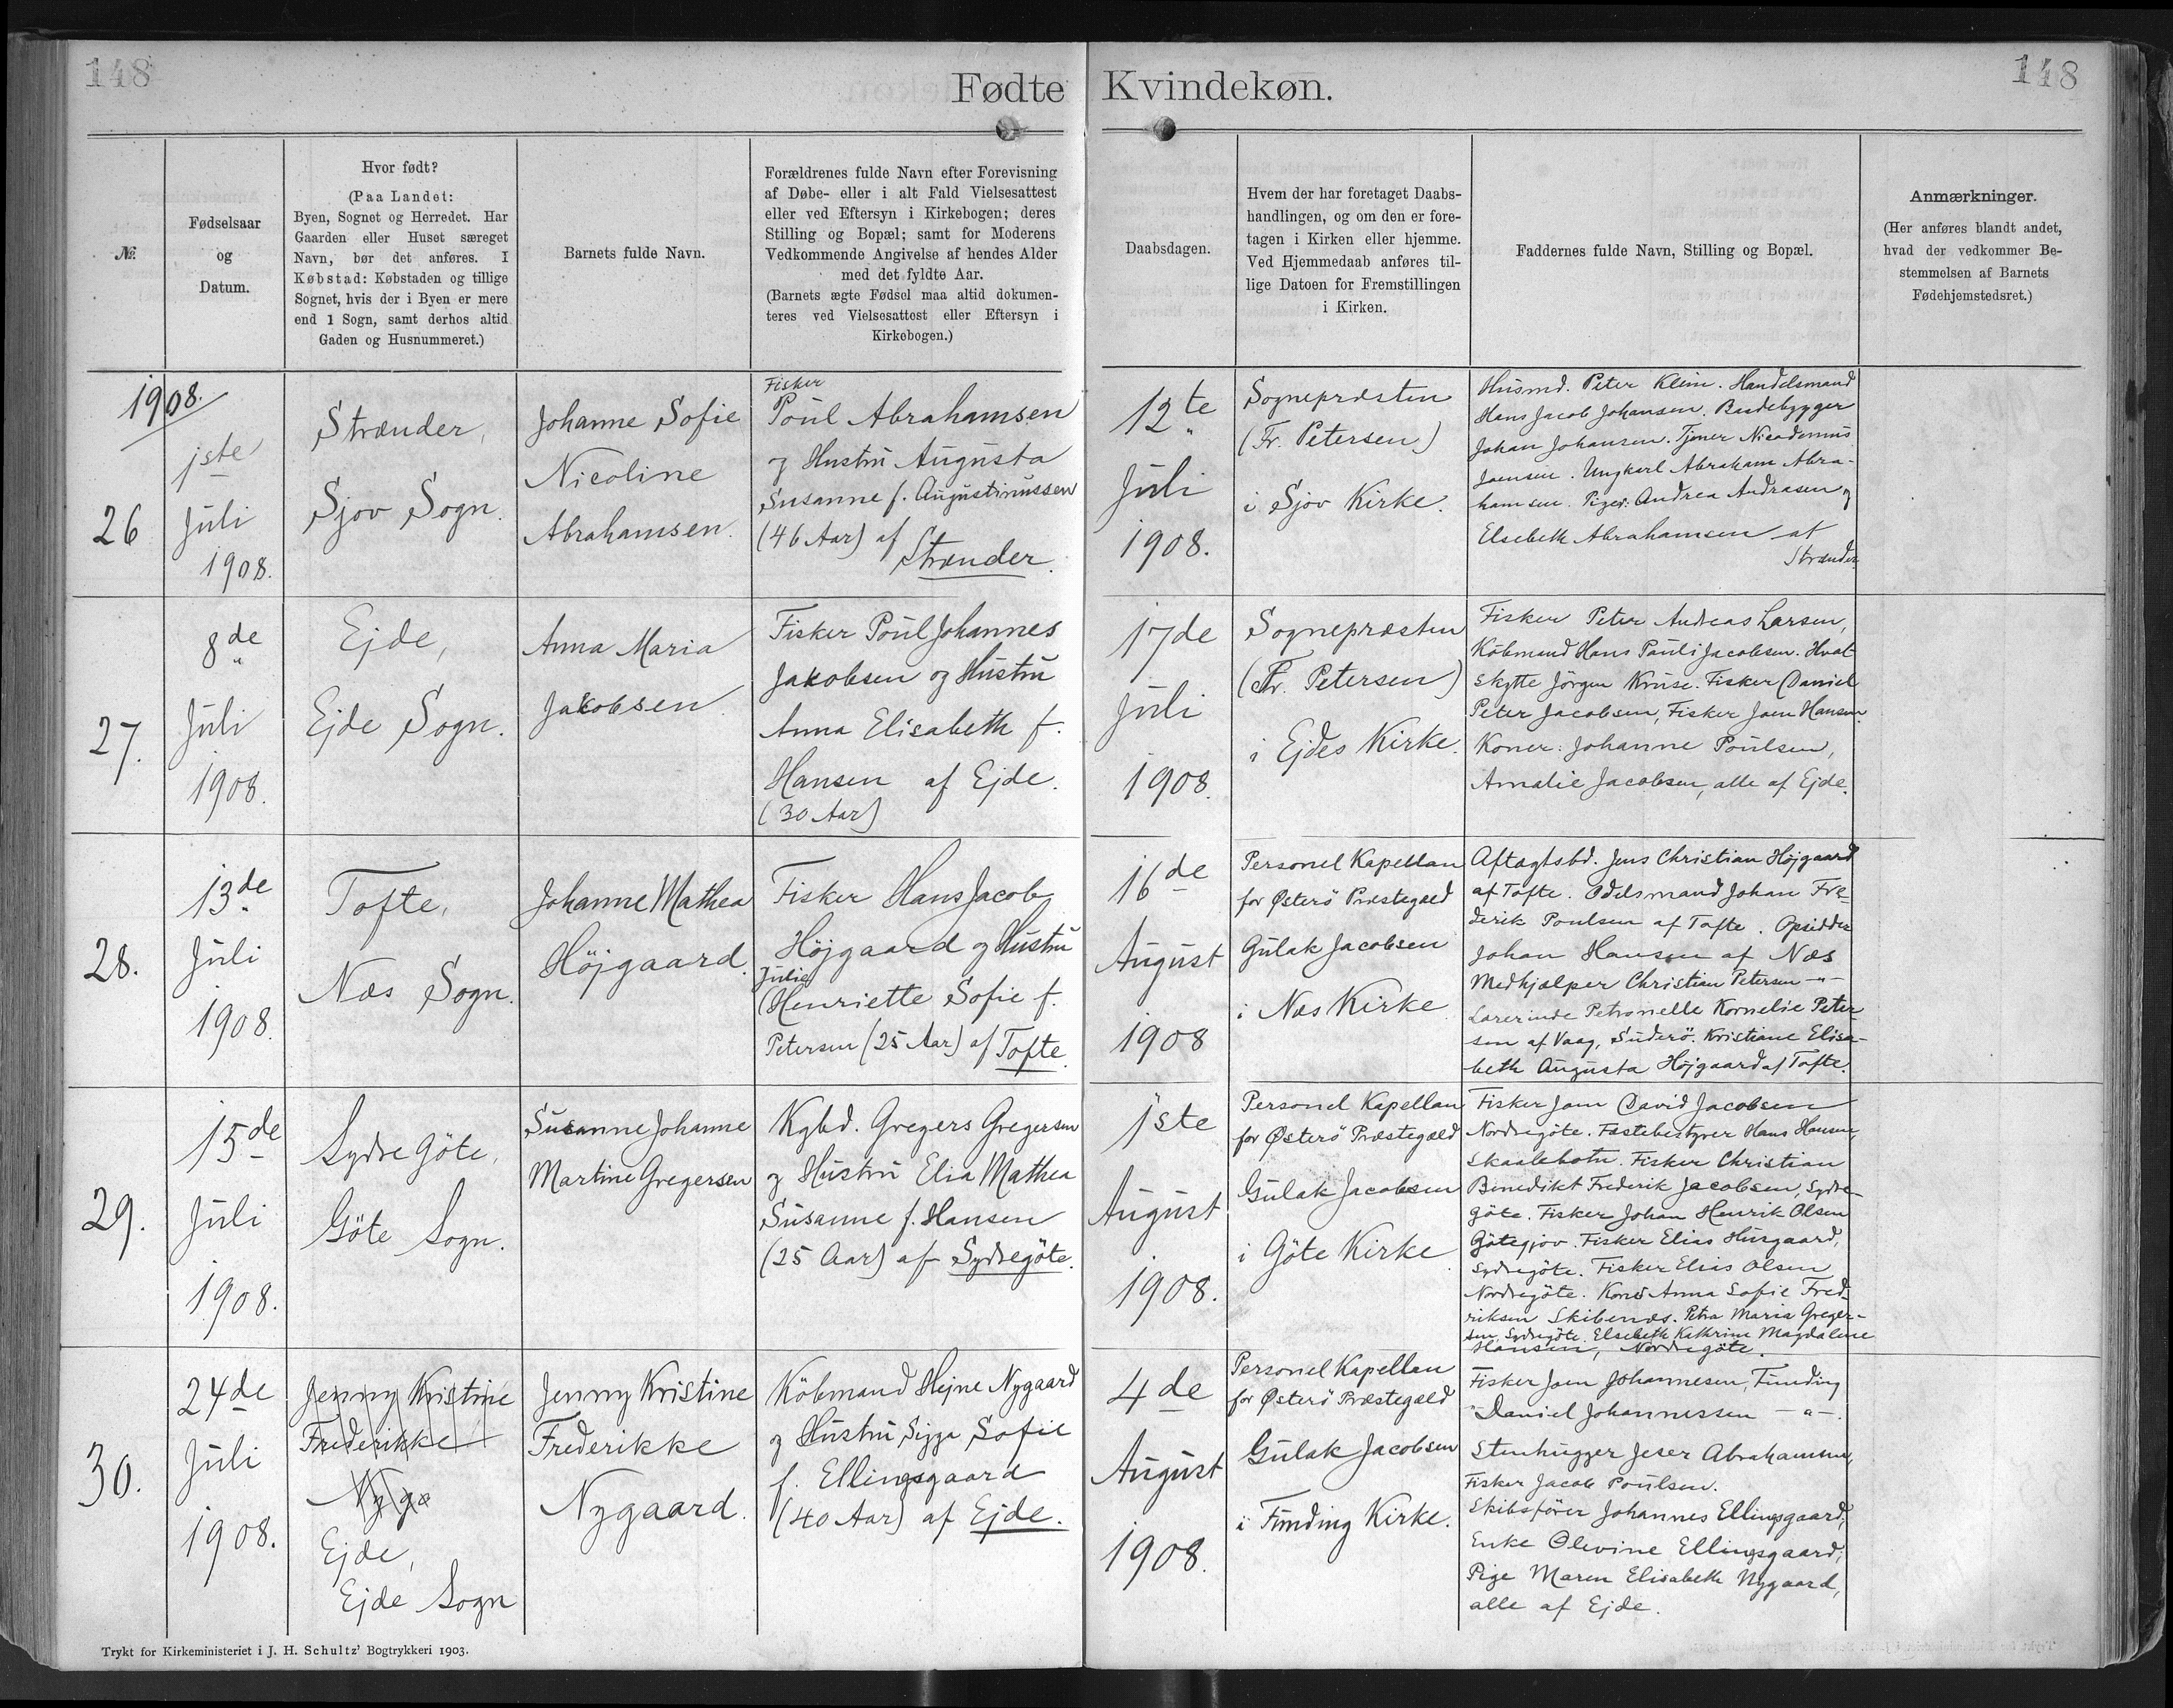 148
Fødte Kvindekøn.
148
№.
Fødselsaar
og
Datum.
Hvor født?
(Paa Landet:
Byen, Sognet og Herredet. Har
Gaarden eller Huset særeget
Navn, bør det anføres. I
Købstad: Købstaden og tillige
Sognet, hvis der i Byen er mere
end 1 Sogn, samt derhos altid
Gaden og Husnummeret.)
Barnets fulde Navn.
Forældrenes fulde Navn efter Forevisning
af Døbe- eller i alt Fald Vielsesattest
eller ved Eftersyn i Kirkebogen; deres
Stilling og Bopæl; samt for Moderens
Vedkommende Angivelse af hendes Alder
med det fyldte Aar.
(Barnets ægte Fødsel maa altid dokumen-
teres ved Vielsesattest eller Eftersyn i
Kirkebogen.)
Daabsdagen.
Hvem der har foretaget Daabs-
handlingen, og om den er fore-
tagen i Kirken eller hjemme.
Ved Hjemmedaab anføres til-
lige Datoen for Fremstillingen
i Kirken.
Faddernes fulde Navn, Stilling og Bopæl.
Anmærkninger.
(Her anføres blandt andet,
hvad der vedkommer Be-
stemmelsen af Barnets
Fødehjemstedsret.)
1908.
26
1ste
Juli
1908.
Strænder,
Sjov Sogn.
Johanne Sofie
Nicoline
Abrahamsen.
Fisker
Poul Abrahamsen
og Hustru Augusta
Susanne f. Augustinussen
(46 Aar) af
Strænder.
12te
Juli
1908.
Sognepræsten
(Fr. Petersen)
i Sjov Kirke.
Husmd. Peter Klein. Handelsmand
Hans Jacob Johansen. Budebygger
Johan Johansen. Tjener Nicodemus
Joensen. Ungkarl Abraham Abra-
hamsen. Piger: Andrea Andrasen og
Elsebeth Abrahamsen af
Strænder
27.
8de
Juli
1908.
Ejde,
Ejde Sogn.
Anna Maria
Jakobsen
Fisker Poul Johannes
Jakobsen og Hustru
Anna Elisabeth f.
Hansen af Ejde.
(30 Aar)
17de
Juli
1908.
Sognepræsten
(Fr. Petersen)
i Ejdes Kirke.
Fisker Peter Andreas Larsen,
Købmand Hans Pauli Jacobsen. Hval-
skytte Jørgen Kruse. Fisker Daniel
Peter Jacobsen, Fisker Joen Hansen
Koner: Johanne Poulsen,
Amalie Jacobsen, alle af Ejde.
28.
13de
Juli
1908.
Tofte,
Næs Sogn.
Johanne Mathea
Höjgaard.
Fisker Hans Jacob
Höjgaard og Hustru
Julie
Henriette Sofie f.
Petersen (25 Aar) af Tofte.
16de
August
1908
Personel Kapellan
for Østerö Præstegæld
Gulak Jacobsen
i Næs Kirke
Aftægtsbd. Jens Christian Höjgaard
af Tofte. Odelsmand Johan Fre-
derik Poulsen af Tofte. Opsidder
Johan Hansen af Næs
Medhjælper Christian Petersen -"-
Lærerinde Petronelle Kornelie Peter-
sen af Vaag, Suderö. Kristiane Elisa-
beth Augusta Höjgaard af Tofte.
29.
15de
Juli
1908.
Sydre Göte,
Göte Sogn.
Susanne Johanne
Martine Gregersen
Kgbd. Gregers Gregersen
og Hustru Elia Mathea
Susanne f. Hansen
(25 Aar) af Sydregöte.
1ste
August
1908.
Personel Kapellan
for Østerö Præstegæld
Gulak Jacobsen
i Göte Kirke
Fisker Joen David Jacobsen
Nordregöte. Fæstebestyrer Hans Hansen,
Skaalebotn. Fisker Christian
Benedikt Frederik Jacobsen, Sydre-
göte. Fisker Johan Henrik Olsen
Götegjov. Fisker Elias Husgaard,
Sydregöte. Fisker Elias Olsen
Nordregöte. Kone Anna Sofie Fred-
riksen Skibenæs. Petra Maria Greger-
sen, Sydregöte. Elsebeth Kathrine Magdalene
Hansen, Nordregöte.
30.
24de
Juli
1908.
Jenny Kristine
Frederikke
Nyga
Ejde,
Ejde Sogn
Jenny Kristine
Frederikke
Nygaard.
Köbmand Hejne Nygaard
og Hustru Sigga Sofie
f. Ellingsgaard
(40 Aar) af Ejde.
4de
August
1908.
Personel Kapellan
for Østerö Præstegæld
Gulak Jacobsen
i Funding Kirke.
Fisker Joen Johannesen, Funding
" Daniel Johannessen -"-.
Stenhugger Jeser Abrahamsen,
Fisker Jacob Poulsen.
Skibsförer Johannes Ellingsgaard,
Enke Olevine Ellingsgaard,
Pige Maren Elisabeth Nygaard,
alle af Ejde.
Trykt for Kirkeministeriet i J. H. Schultz' Bogtrykkeri 1903.